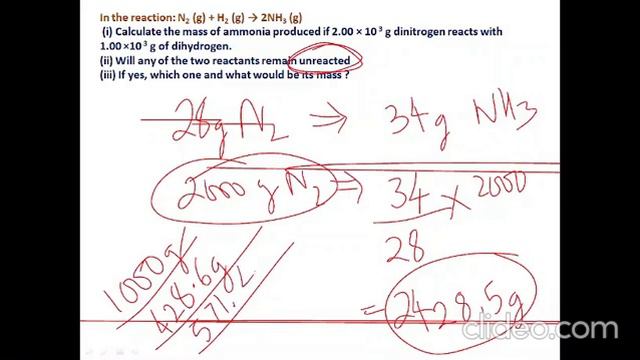 In the reaction: N₂ (g) + H₂ (g) → 2NH₃ (g)
(i) Calculate the mass of ammonia produced if 2.00 × 10 ³ g dinitrogen reacts with
1.00 ×10 ³ g of dihydrogen.
(ii) Will any of the two reactants remain unreacted
(iii) If yes, which one and what would be its mass ?
28g N₂ ⇒ 34g NH3
2000 g N₂ ⇒ 34 × 2000
28
= 2428.5g
1000g
428.6g
571.2
clideo.com